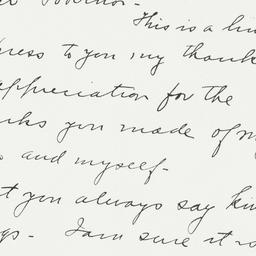 This is a
to you my thank
appreciation for the
you made of m
and myself-
you always say
I am sure it